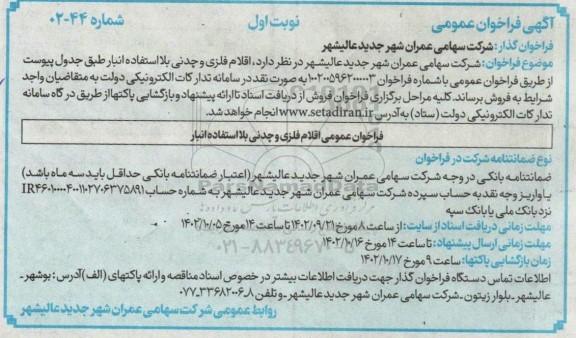 آگهی فراخوان عمومی نوبت اول شماره ۴۴-۰۲
فراخوان گذار: شرکت سهامی عمران شهر جدید عالیشهر
موضوع فراخوان: شرکت سهامی عمران شهر جدید عالیشهر در نظر دارد، اقلام فلزی و چدنی بلااستفاده انبار طبق جدول پیوست
از طریق فراخوان عمومی با شماره فراخوان ۱۰۰۲۰۰۵۹۶۲۰۰۰۰۰۳ به صورت نقد در سامانه تدارکات الکترونیکی دولت به متقاضیان واجد
شرایط به فروش برساند. کلیه مراحل برگزاری فراخوان فروش از دریافت اسناد تا ارائه پیشنهاد و بازگشایی پاکتها از طریق درگاه سامانه
تدارکات الکترونیکی دولت (ستاد) به آدرس www.setadiran.ir انجام خواهد شد.
فراخوان عمومی اقلام فلزی و چدنی بلا استفاده انبار
نوع ضمانتنامه شرکت در فراخوان
ضمانتنامه بانکی در وجه شرکت سهامی عمران شهر جدید عالیشهر (اعتبار ضمانتنامه بانکی حداقل باید سه ماه باشد)
یا واریز وجه نقد به حساب سپرده شرکت سهامی عمران شهر جدید عالیشهر به شماره حساب
نزد بانک ملی یا بانک سپه
مهلت زمانی دریافت اسناد از سایت: از ساعت ۸ مورخ ۱۴۰۲/۰۹/۲۱ تا ساعت ۱۴ مورخ ۱۴۰۲/۱۰/۰۵
مهلت زمانی ارسال پیشنهاد: تا ساعت ۱۴ مورخ ۱۴۰۲/۱۰/۱۶
زمان بازگشایی پاکتها: ساعت ۹ مورخ ۱۴۰۲/۱۰/۱۷
اطلاعات تماس دستگاه فراخوان گذار جهت دریافت اطلاعات بیشتر در خصوص اسناد مناقصه و ارائه پاکتهای (الف) آدرس: بوشهر ـ
عالیشهر ـ بلوار زیتون ـ شرکت سهامی عمران شهر جدید عالیشهر ـ و تلفن ۸ـ۰۷۷۳۳۶۸۲۰۰۶
روابط عمومی شرکت سهامی عمران شهر جدید عالیشهر